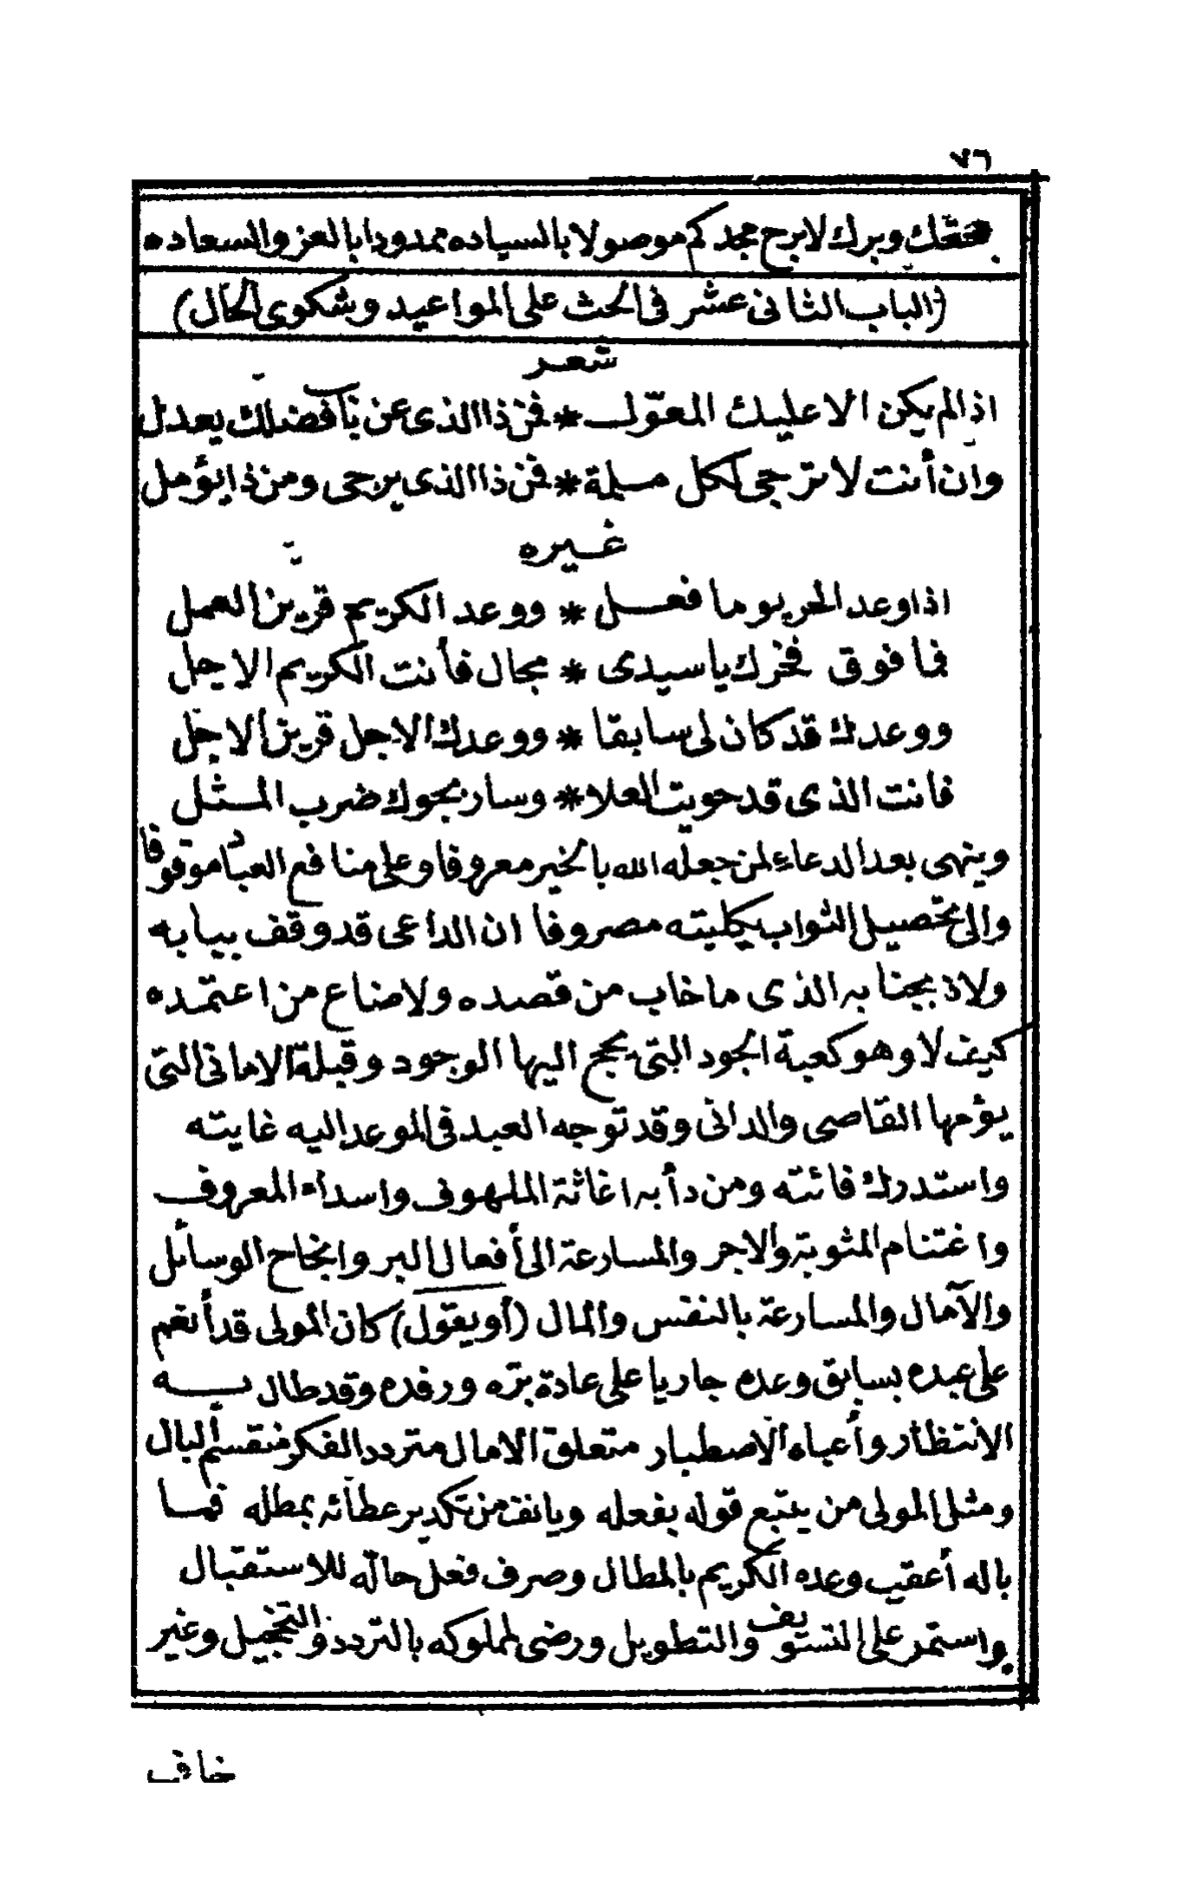 ٧٦
بحقك وبرك لا برح مجدكم موصولا بالسياده ممدودا بالعز والسعاده
(الباب الثانى عشر فى الحث على المواعيد وشكوى الحال)
شعر
اذا لم يكن الا عليك المعوّل * فمن ذا الذى عن باب فضلك يعدل
وان أنت لا ترجى لكل مسلمة * فمن ذا الذى يرجى ومن ذا يؤمل
غيره
اذا وعد الحر يوما فعل * ووعد الكريم قرين العمل
فما فوق فخرك يا سيدى * مجال فأنت الكريم الاجل
ووعدك قد كان لى سابقا * ووعدك الاجل قرين الاجل
فانت الذى قد حويت العلا * وسار بجوك ضرب المثل
وينهى بعد الدعاء لمن جعله الله بالخير معروفا وعلى منافع العباد موقوفا
والى تحصيل الثواب بكليته مصروفا ان الداعى قد وقف ببابه
ولاذ بجنابه الذى ما خاب من قصده ولا ضاع من اعتمده
كيف لا وهو كعبة الجود التى يحج اليها الوجود وقبلة الامانى التى
يؤمها القاصى والدانى وقد توجه العبد فى الموعد اليه غايته
واستدرك فائته ومن دأبه اغاثة الملهوف واسداء المعروف
واغتنام المثوبة والاجر والمسارعة الى أفعال البر وانجاح الوسائل
والآمال والمسارعة بالنفس والمال (أو يقول) كان المولى قد أنعم
على عبده بسابق وعده جاريا على عادة برّه ورفده وقد طال به
الانتظار وأعياه الاصطبار متعلق الامال متردد الفكر منقسم البال
ومثل المولى من يتبع قوله بفعله ويانف من تكدير عطائه بمطله فما
باله أعقب وعده الكريم بالمطال وصرف فعل حاله للاستقبال
واستمر على التسويف والتطويل ورضى لملوكه بالتردد والتخجيل وغير
خاف